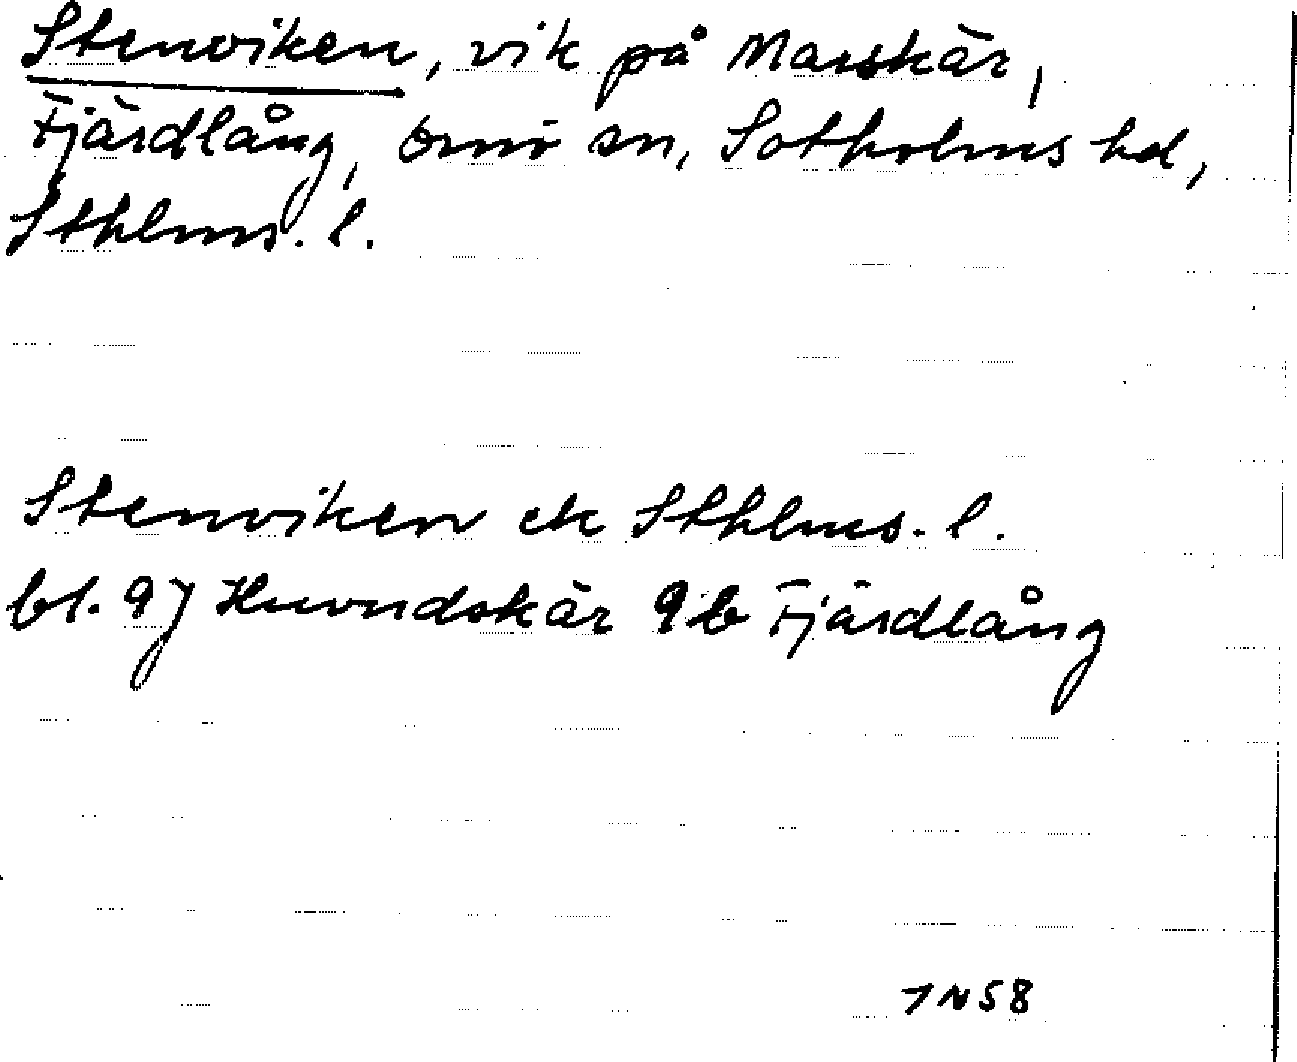 Stenviken, vik på Marskär,
Fjärdlång, Ornö sn, Sotholms hd,
Sthlms. l.
Stenviken ek Sthlms. l.
bl. 9J Huvudskär 9b Fjärdlång
JN58